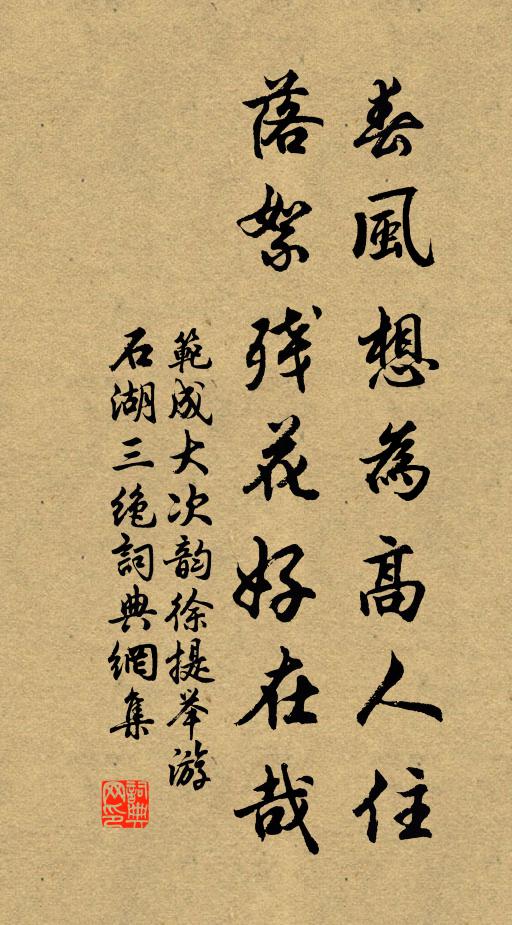 春風想為高人住
落絮残花好在哉
範成大次韵徐提举游
石湖三绝詞典網集
詞典
网印